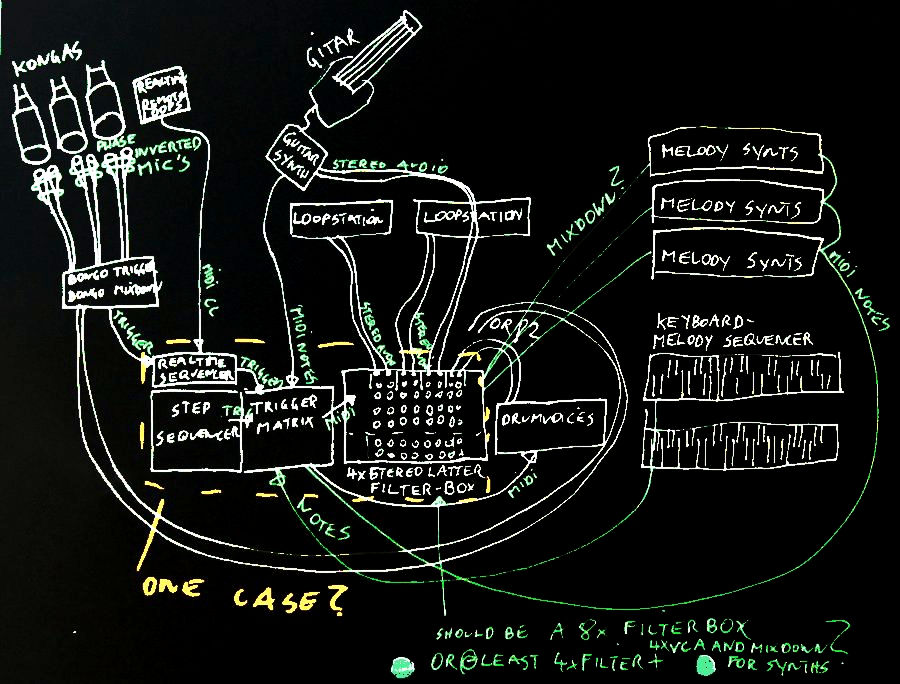 KONGAS
GITAR
REALTIME
REMOTE
LOOPS
PHASE
INVERTED
MIC'S
GUITAR
SYNTH
STEREO AUDIO
LOOPSTATION
LOOPSTATION
MIXDOWN?
MELODY SYNTS
MELODY SYNTS
MELODY SYNTS
MIDI NOTES
BONGO TRIGGER
BONGO MIXDOWN
MIDI CC
TRIGGER
MIDI NOTES
STEREO
STEREO
/OR D?
KEYBOARD-
MELODY SEQUENCER
REALTIME
SEQUENCER
TRIGGER
STEP
SEQUENCER
TRIG
TRIGGER
MATRIX
MIDI
DRUMVOICES
4XSTEREO LATTER
FILTER-BOX
MIDI
NOTES
ONE CASE?
SHOULD BE A 8X FILTERBOX
OR @LEAST 4XFILTER+
4XVCA AND MIXDOWN
FOR SYNTHS?